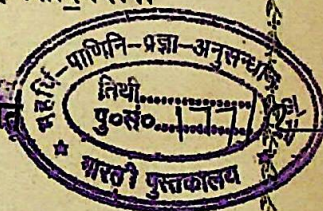 महर्षि-पाणिनि-प्रज्ञा-अनुसन्धान
तिथी..............
पु०सं०...1771
भारती पुस्तकालय